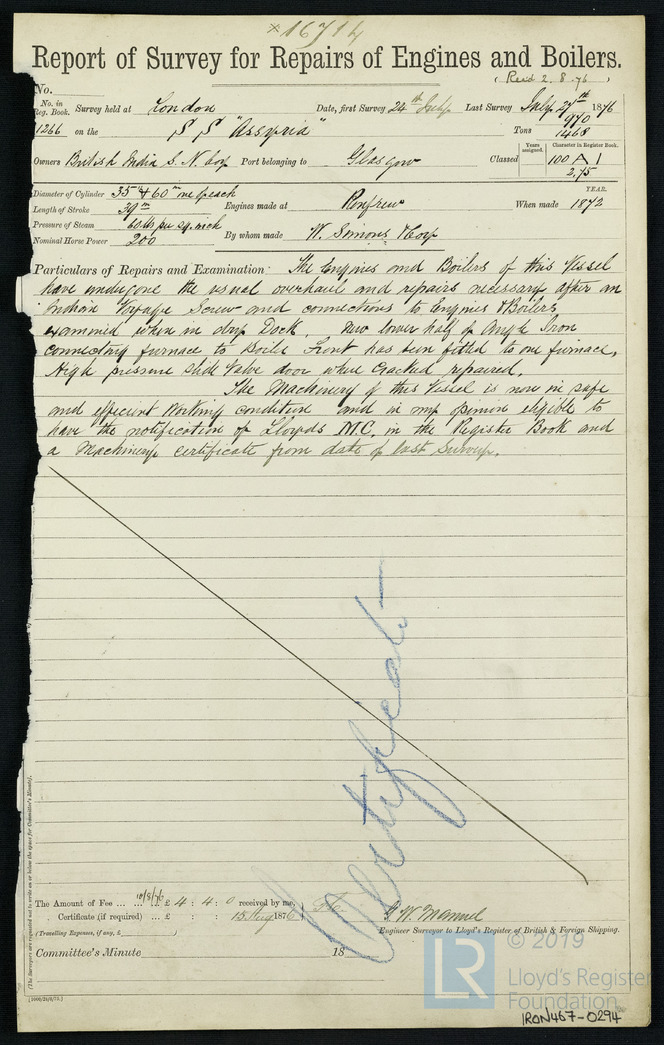 * 16714
Report of Survey for Repairs of Engines and Boilers.
( Recd 2. 8. 76 )
No.
No. in Reg. Book. Survey held at London Date, first Survey 24th July Last Survey July 27th 1876
1266 on the S S "Assyria" Tons 970
1468
Years assigned. Character in Register Book.
Owners British India S. N. Coy Port belonging to Glasgow Classed 100 A 1
2,75
Diameter of Cylinder 35 & 60 in one of each YEAR.
Length of Stroke 39 in Engines made at Renfrew When made 1872
Pressure of Steam 60 lbs per sq. inch
Nominal Horse Power 200 By whom made W. Simons & Coy
Particulars of Repairs and Examination: The Engines and Boilers of this Vessel
have undergone the usual overhaul and repairs necessary after an
Indian Voyage Screw and connections to Engines & Boilers
examined when in dry Dock. New lower half of Angle Iron
connecting furnace to Boiler Front has been fitted to one furnace,
High pressure slide Valve door where cracked repaired.
The Machinery of this Vessel is now in safe
and efficient Working condition and in my opinion eligible to
have the notification of Lloyds M.C. in the Register Book and
a Machinery certificate from date of last Survey.
Certificate
(The Surveyors are requested not to write on or below the space for Committee's Minute).
10/8/76
The Amount of Fee ... ... £ 4 : 4 : 0 received by me,
Certificate (if required) ... £ : : 15 Aug 1876
W. Manuel
(Travelling Expenses, if any, £ )
Engineer Surveyor to Lloyd's Register of British & Foreign Shipping.
Committee's Minute 18
© 2019
LR
Lloyd's Register
Foundation
IRON467-0294